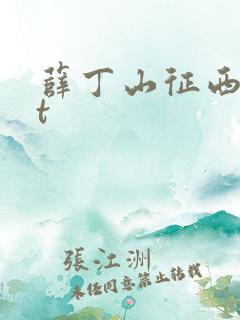 薛丁山征西
t
張江洲
未经同意禁止转载